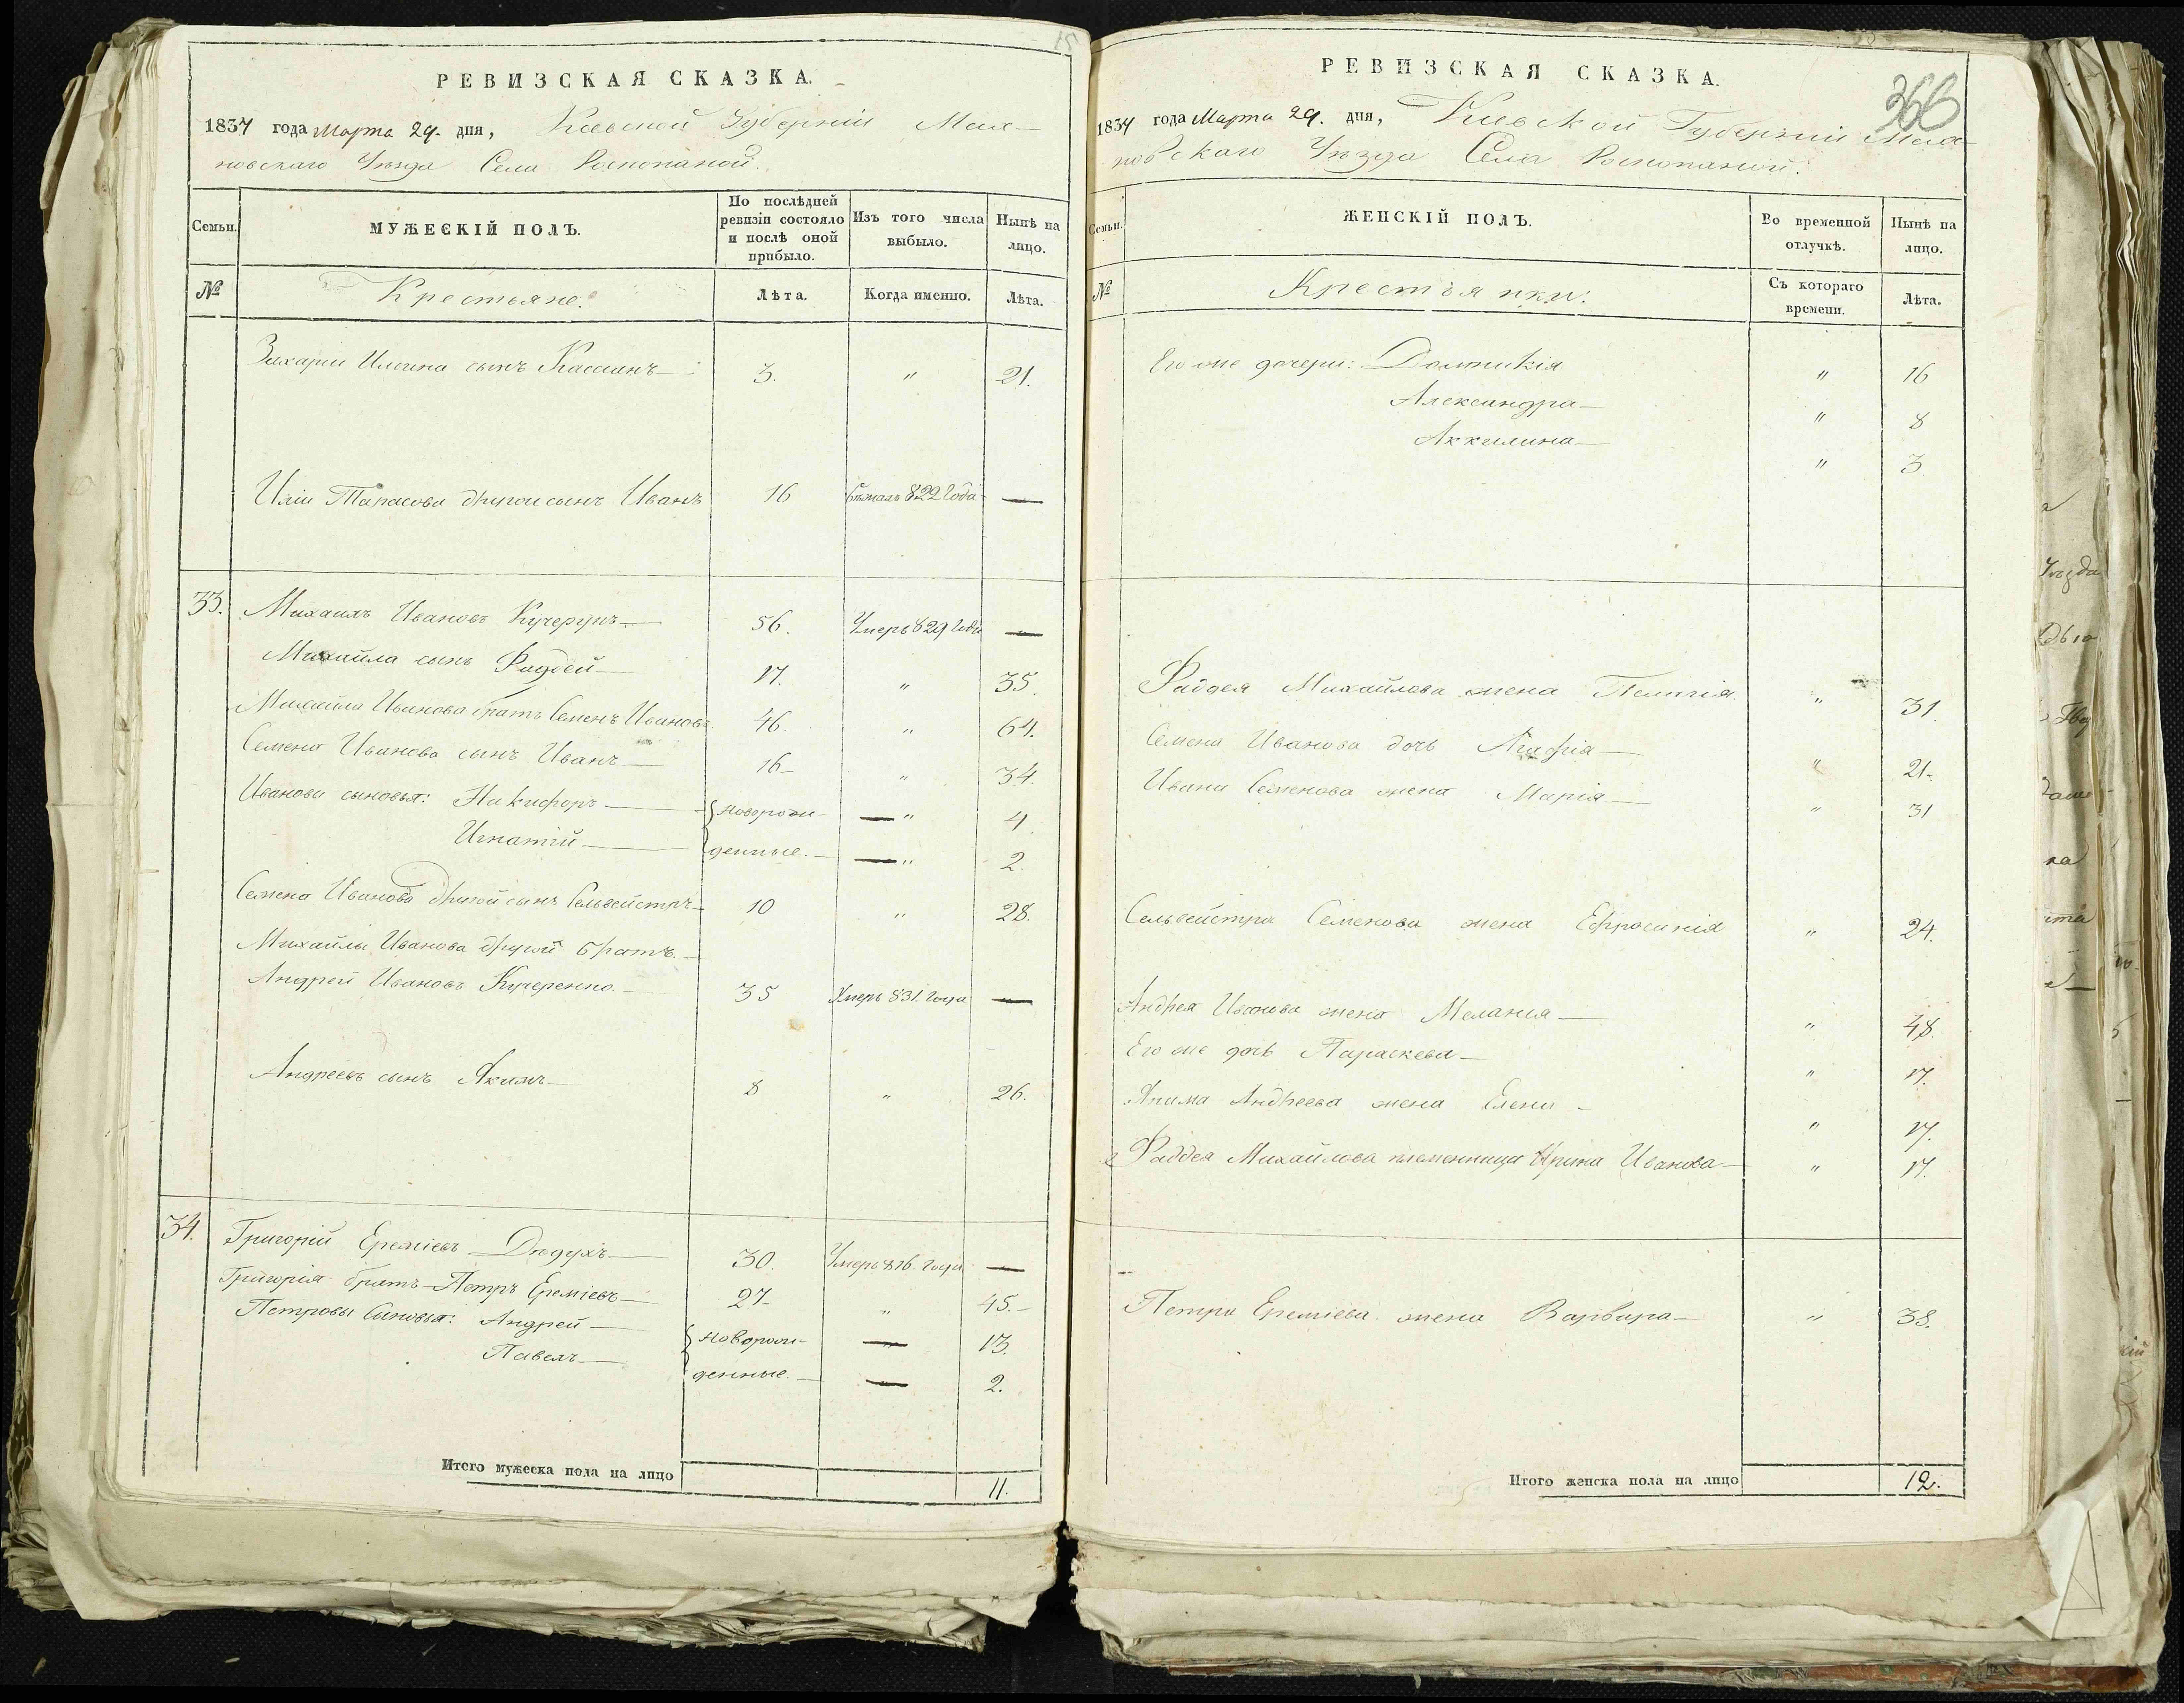 15
РЕВИЗСКАЯ СКАЗКА.
1834 года Марта 29. дня, Киевской Губерніи Меха-
новскаго Уѣзда Села Роскопаной.
Семьи.
МУЖЕСКІЙ ПОЛЪ.
По послѣдней ревизіи состояло и послѣ оной прибыло.
Изъ того числа выбыло.
Нынѣ на лицо.
№
Крестьяне.
Лѣта.
Когда именно.
Лѣта.
Захарии Илиина сынъ Кассианъ 3. " 21.
Иліи Тарасова другои сынъ Иванъ 16 бѣжалъ 822 Года —
33. Михаилъ Ивановъ Кучерукъ 56. Умеръ 829 Года —
Михайла сынъ Фаддей 17. " 35.
Михайла Иванова братъ Семенъ Ивановъ 46. " 64.
Семена Иванова сынъ Иванъ 16 " 34.
Ивановы сыновья: Никифоръ — новорож- — " 4.
Игнатій — денные. — " 2.
Семена Иванова другой сынъ Сельвейстръ 10 " 28.
Михайлы Иванова другой братъ.
Андрей Ивановъ Кучеренко. 35 Умеръ 831. Года —
Андреевъ сынъ Акимъ 8 " 26.
34. Григорій Ереміевъ Дидухъ 30. Умеръ 816. Года —
Григорія братъ Петръ Ереміевъ 27. " 45.
Петровы Сыновья: Андрей — новорож- — 13.
Павелъ — денные. — 2.
Итого мужеска пола на лицо 11.
366
РЕВИЗСКАЯ СКАЗКА.
1834 года Марта 29. дня, Киевской Губерніи Меха-
новскаго Уѣзда Села Роскопаной.
Семьи.
ЖЕНСКІЙ ПОЛЪ.
Во временной отлучкѣ.
Нынѣ на лицо.
№
Крестьянки:
Съ котораго времени.
Лѣта.
Его же дочери: Домникія " 16
Александра " 8
Аккилина " 3.
Фаддея Михайлова жена Пелагія " 31.
Семена Иванова дочь Агафія " 21.
Ивана Семенова жена Марія " 31
Сельвейстра Семенова жена Ефросинія " 24.
Андрея Иванова жена Мелания " 48.
Его же дочь Параскева " 17.
Якима Андреева жена Елена " 17.
Фаддея Михайлова племенница Ирина Иванова " 17.
Петра Ереміева жена Варвара " 38.
Итого женска пола на лицо 12.